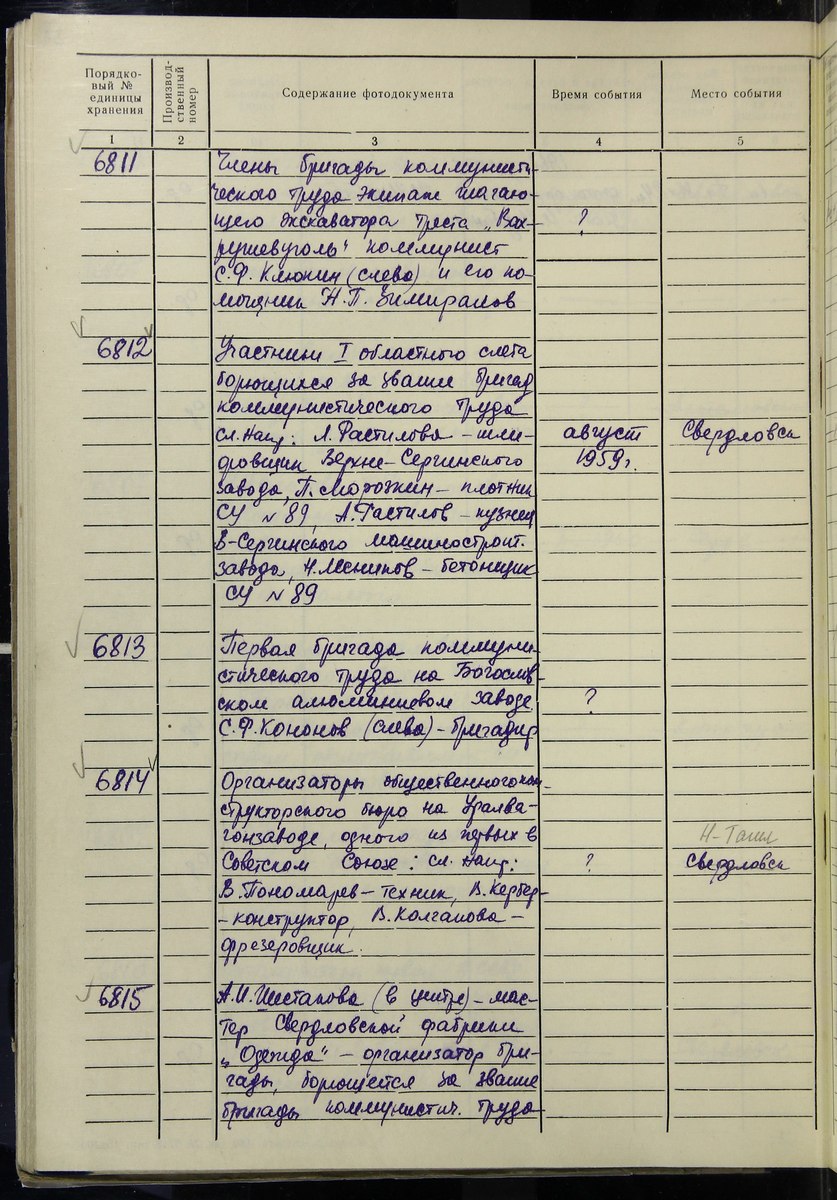 Порядко-
вый №
единицы
хранения
Производ-
ственный
номер
Содержание фотодокумента
Время события
Место события
1
2
3
4
5
6811
Члены бригады коммунисти-
ческого труда экипаж шагаю-
щего экскаватора треста „Вах-
?
рушевуголь" коммунист
С.Ф. Клюкин (слева) и его по-
мощник Н.П.
6812
Участники I областного слета
борющихся за звание бригад
коммунистического труда
сл. напр: Л. Растилова – шли-
август
Свердловск
фовщик Верхне-Сергинского
1959г.
завода, П. Морозкин – плотник
СУ № 89, А. Растилов – кузнец
В-Сергинского машиностроит.
завода, – бетонщик
СУ № 89
6813
Первая бригада коммуни-
стического труда на Богослов-
ском алюминиевом заводе
?
С.Ф. Кононов (слева) – бригадир
6814
Организаторы общественного кон-
структорского бюро на Уралва-
гонзаводе, одного из первых в
Н-Тагил
Советском Союзе: сл. напр:
?
Свердловск
В. Пономарев – техник, В. Кербер-
– конструктор, В. Колганова –
фрезеровщик.
6815
А.И. Шестакова (в центре) – мас-
тер Свердловской фабрики
„Одежда" – организатор бри-
гады, борющейся за звание
бригады коммунистич. труда